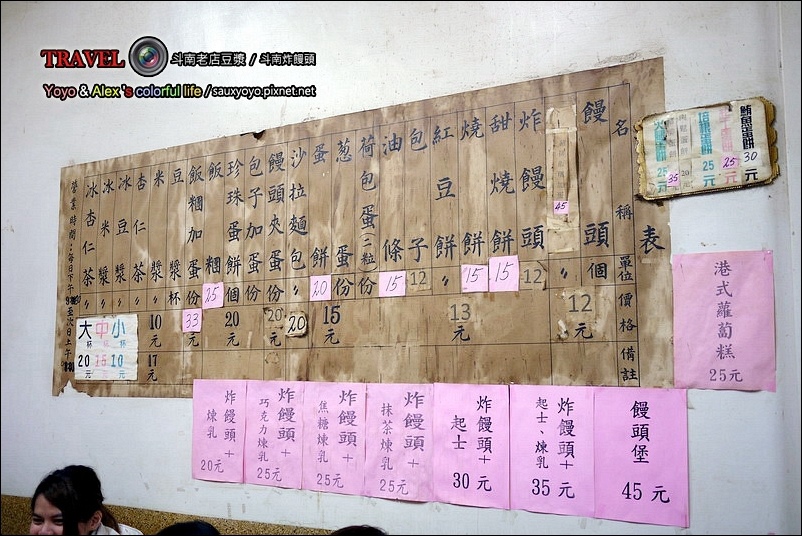 TRAVEL 斗南老店豆漿 / 斗南炸饅頭
Yoyo & Alex 's colorful life / sauxyoyo.pixnet.net
名稱 單位 價格 備註
表
饅頭 個 12元
45
炸饅頭 〃 12
甜燒餅 15
燒餅 15
紅豆餅 〃 13元
包子 12
油條 15
荷包蛋(二粒) 份
葱蛋 份 15元
蛋餅 20
沙拉麵包 〃 20
饅頭夾蛋 份 20元
包子加蛋 份
珍珠蛋餅 個 20元
飯糰 25
飯糰加蛋 份 33元
豆漿 杯
米漿 〃 10元 17元
杏仁茶 〃
冰豆漿 〃
冰米漿 〃
冰杏仁茶 〃
大杯 20元
中杯 15元
小杯 10元
營業時間:每日下午
至次日上午
鮪魚蛋餅 30元
25元
蛋餅 25元
35
港式蘿蔔糕 25元
炸饅頭+煉乳 20元
炸饅頭+巧克力煉乳 25元
炸饅頭+焦糖煉乳 25元
炸饅頭+抹茶煉乳 25元
炸饅頭+起士 30元
炸饅頭+起士、煉乳 35元
饅頭堡 45元